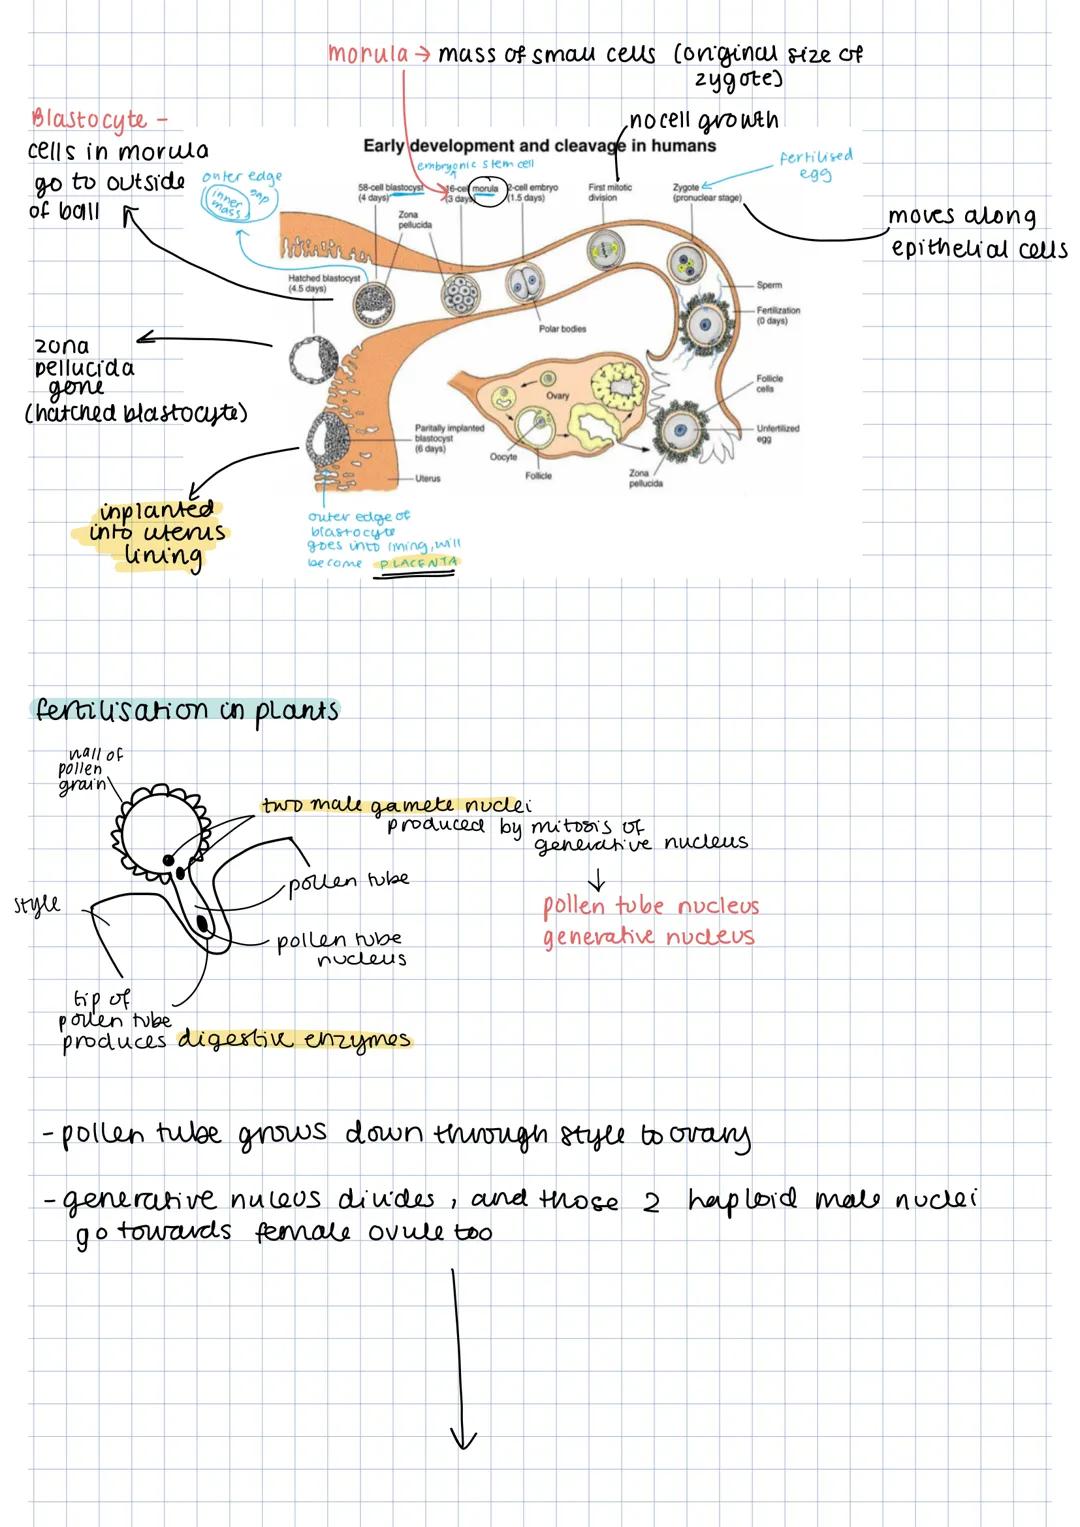 morula → mass of small cells (original size of
zygote)
Blastocyte -
cells in morula
go to outside
of ball
no cell growth
Early development and cleavage in humans
embryonic stem cell
fertilised
egg
outer edge
inner
mass
gap
58-cell blastocyst
(4 days)
16-cell morula
(3 days)
2-cell embryo
(1.5 days)
First mitotic
division
Zygote
(pronuclear stage)
moves along
epithelial cells
Zona
pellucida
Hatched blastocyst
(4.5 days)
Sperm
Fertilization
(0 days)
Polar bodies
zona
pellucida
gone
(hatched blastocyte)
Ovary
Follicle
cells
Paritally implanted
blastocyst
(6 days)
Unfertilized
egg
Oocyte
Follicle
Zona
pellucida
Uterus
inplanted
into uterus
lining
outer edge of
blastocyte
goes into lining, will
become PLACENTA
fertilisation in plants
wall of
pollen
grain
two male gamete nuclei
produced by mitosis of
generative nucleus
↓
pollen tube nucleus
generative nucleus
pollen tube
style
pollen tube
nucleus
tip of
pollen tube
produces digestive enzymes
- pollen tube grows down through style to ovary
- generative nuleus divides, and those 2 haploid male nuclei
go towards female ovule too